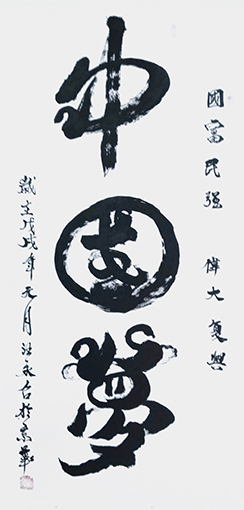 國富民强 偉大復興
中國夢
歲在戊戌年元月汪永石於京華